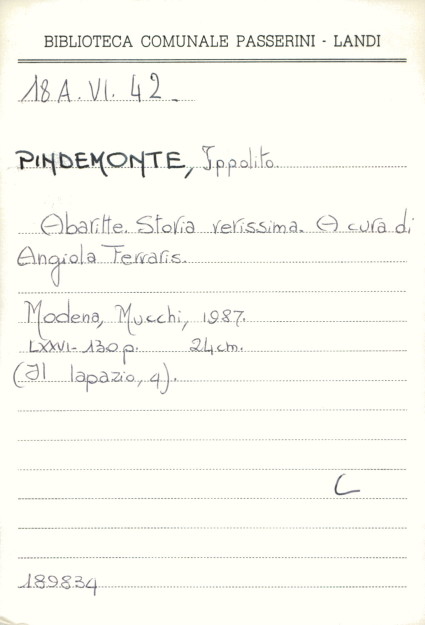 BIBLIOTECA COMUNALE PASSERINI - LANDI
18 A. VI. 42
PINDEMONTE, Ippolito.
Abaritte. Storia verissima. A cura di
Angiola Ferraris.
Modena, Mucchi, 1987.
LXXVI-130 p. 24 cm.
(Il lapazio, 4).
C
189834